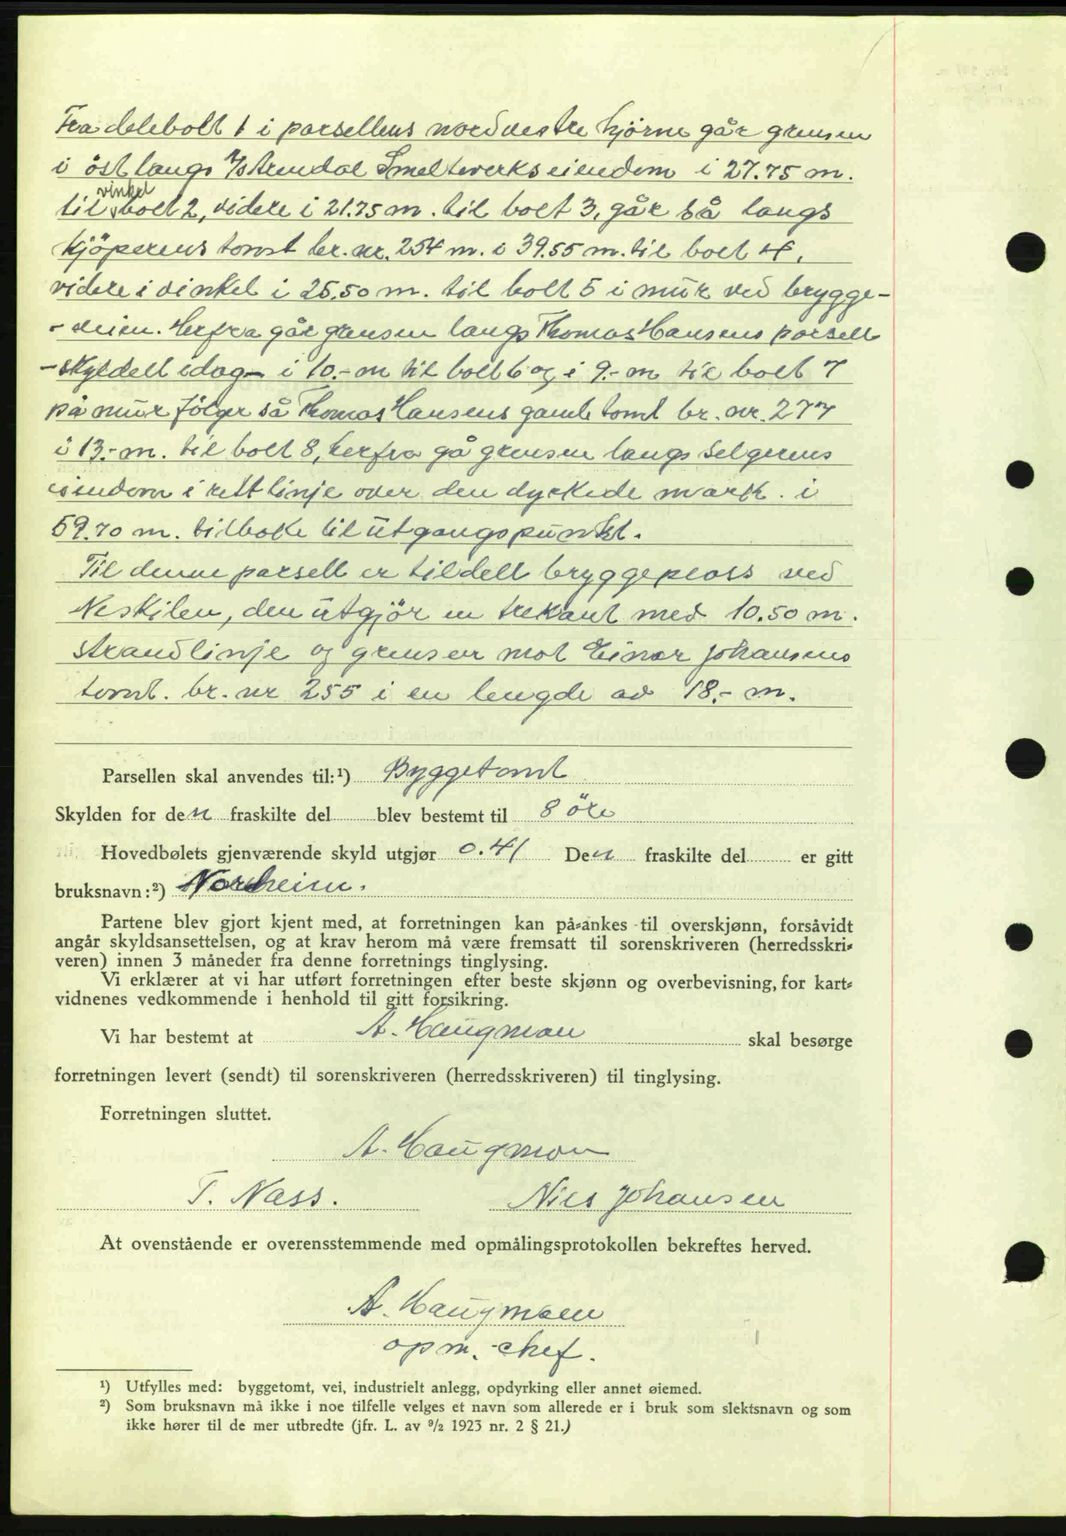 Fra delebolt 1 i parsellens nordvestre hjörne går grensen
i öst langs A/S Arendal Smelteverks eiendom i 27.75 m.
vinkel
til bolt 2, videre i 21.75 m. til bolt 3, går så langs
kjöperens tomt br. nr. 254 m. i 39.55 m. til bolt 4,
videre i vinkel i 25.50 m. til bolt 5 i mur ved brygge-
-veien. Herfra går grensen langs Thomas Hansens parsell
- skyldelt idag - i 10.- m til bolt 6 og i 9.- m til bolt 7
på mur følger så Thomas Hansens gamle tomt br. nr. 277
i 13.- m. til bolt 8, herfra gå grensen langs selgerens
eiendom i rett linje over den dyrkede mark. i
59.70 m. tilbake til utgangspunkt.
Til denne parsell er tildelt bryggeplass ved
Neskilen, den utgjör en trekant med 10.50 m.
strandlinje og grenser mot Einar Johansens
tomt. br. nr 255 i en lengde av 18.- m.
Parsellen skal anvendes til:¹) Byggetomt
Skylden for den fraskilte del blev bestemt til 8 öre
Hovedbølets gjenværende skyld utgjør 0.41 Den fraskilte del er gitt
bruksnavn:²) Norheim.
Partene blev gjort kjent med, at forretningen kan på-ankes til overskjønn, forsåvidt
angår skyldsansettelsen, og at krav herom må være fremsatt til sorenskriveren (herredsskri-
veren) innen 3 måneder fra denne forretnings tinglysing.
Vi erklærer at vi har utført forretningen efter beste skjønn og overbevisning, for kart-
vidnenes vedkommende i henhold til gitt forsikring.
Vi har bestemt at A. Haugman skal besørge
forretningen levert (sendt) til sorenskriveren (herredsskriveren) til tinglysing.
Forretningen sluttet.
A. Haugman
T. Nass. Nils Johansen
At ovenstående er overensstemmende med opmålingsprotokollen bekreftes herved.
A. Haugman
opm. chef.
¹) Utfylles med: byggetomt, vei, industrielt anlegg, opdyrking eller annet øiemed.
²) Som bruksnavn må ikke i noe tilfelle velges et navn som allerede er i bruk som slektsnavn og som
ikke hører til de mer utbredte (jfr. L. av 9/2 1923 nr. 2 § 21.)